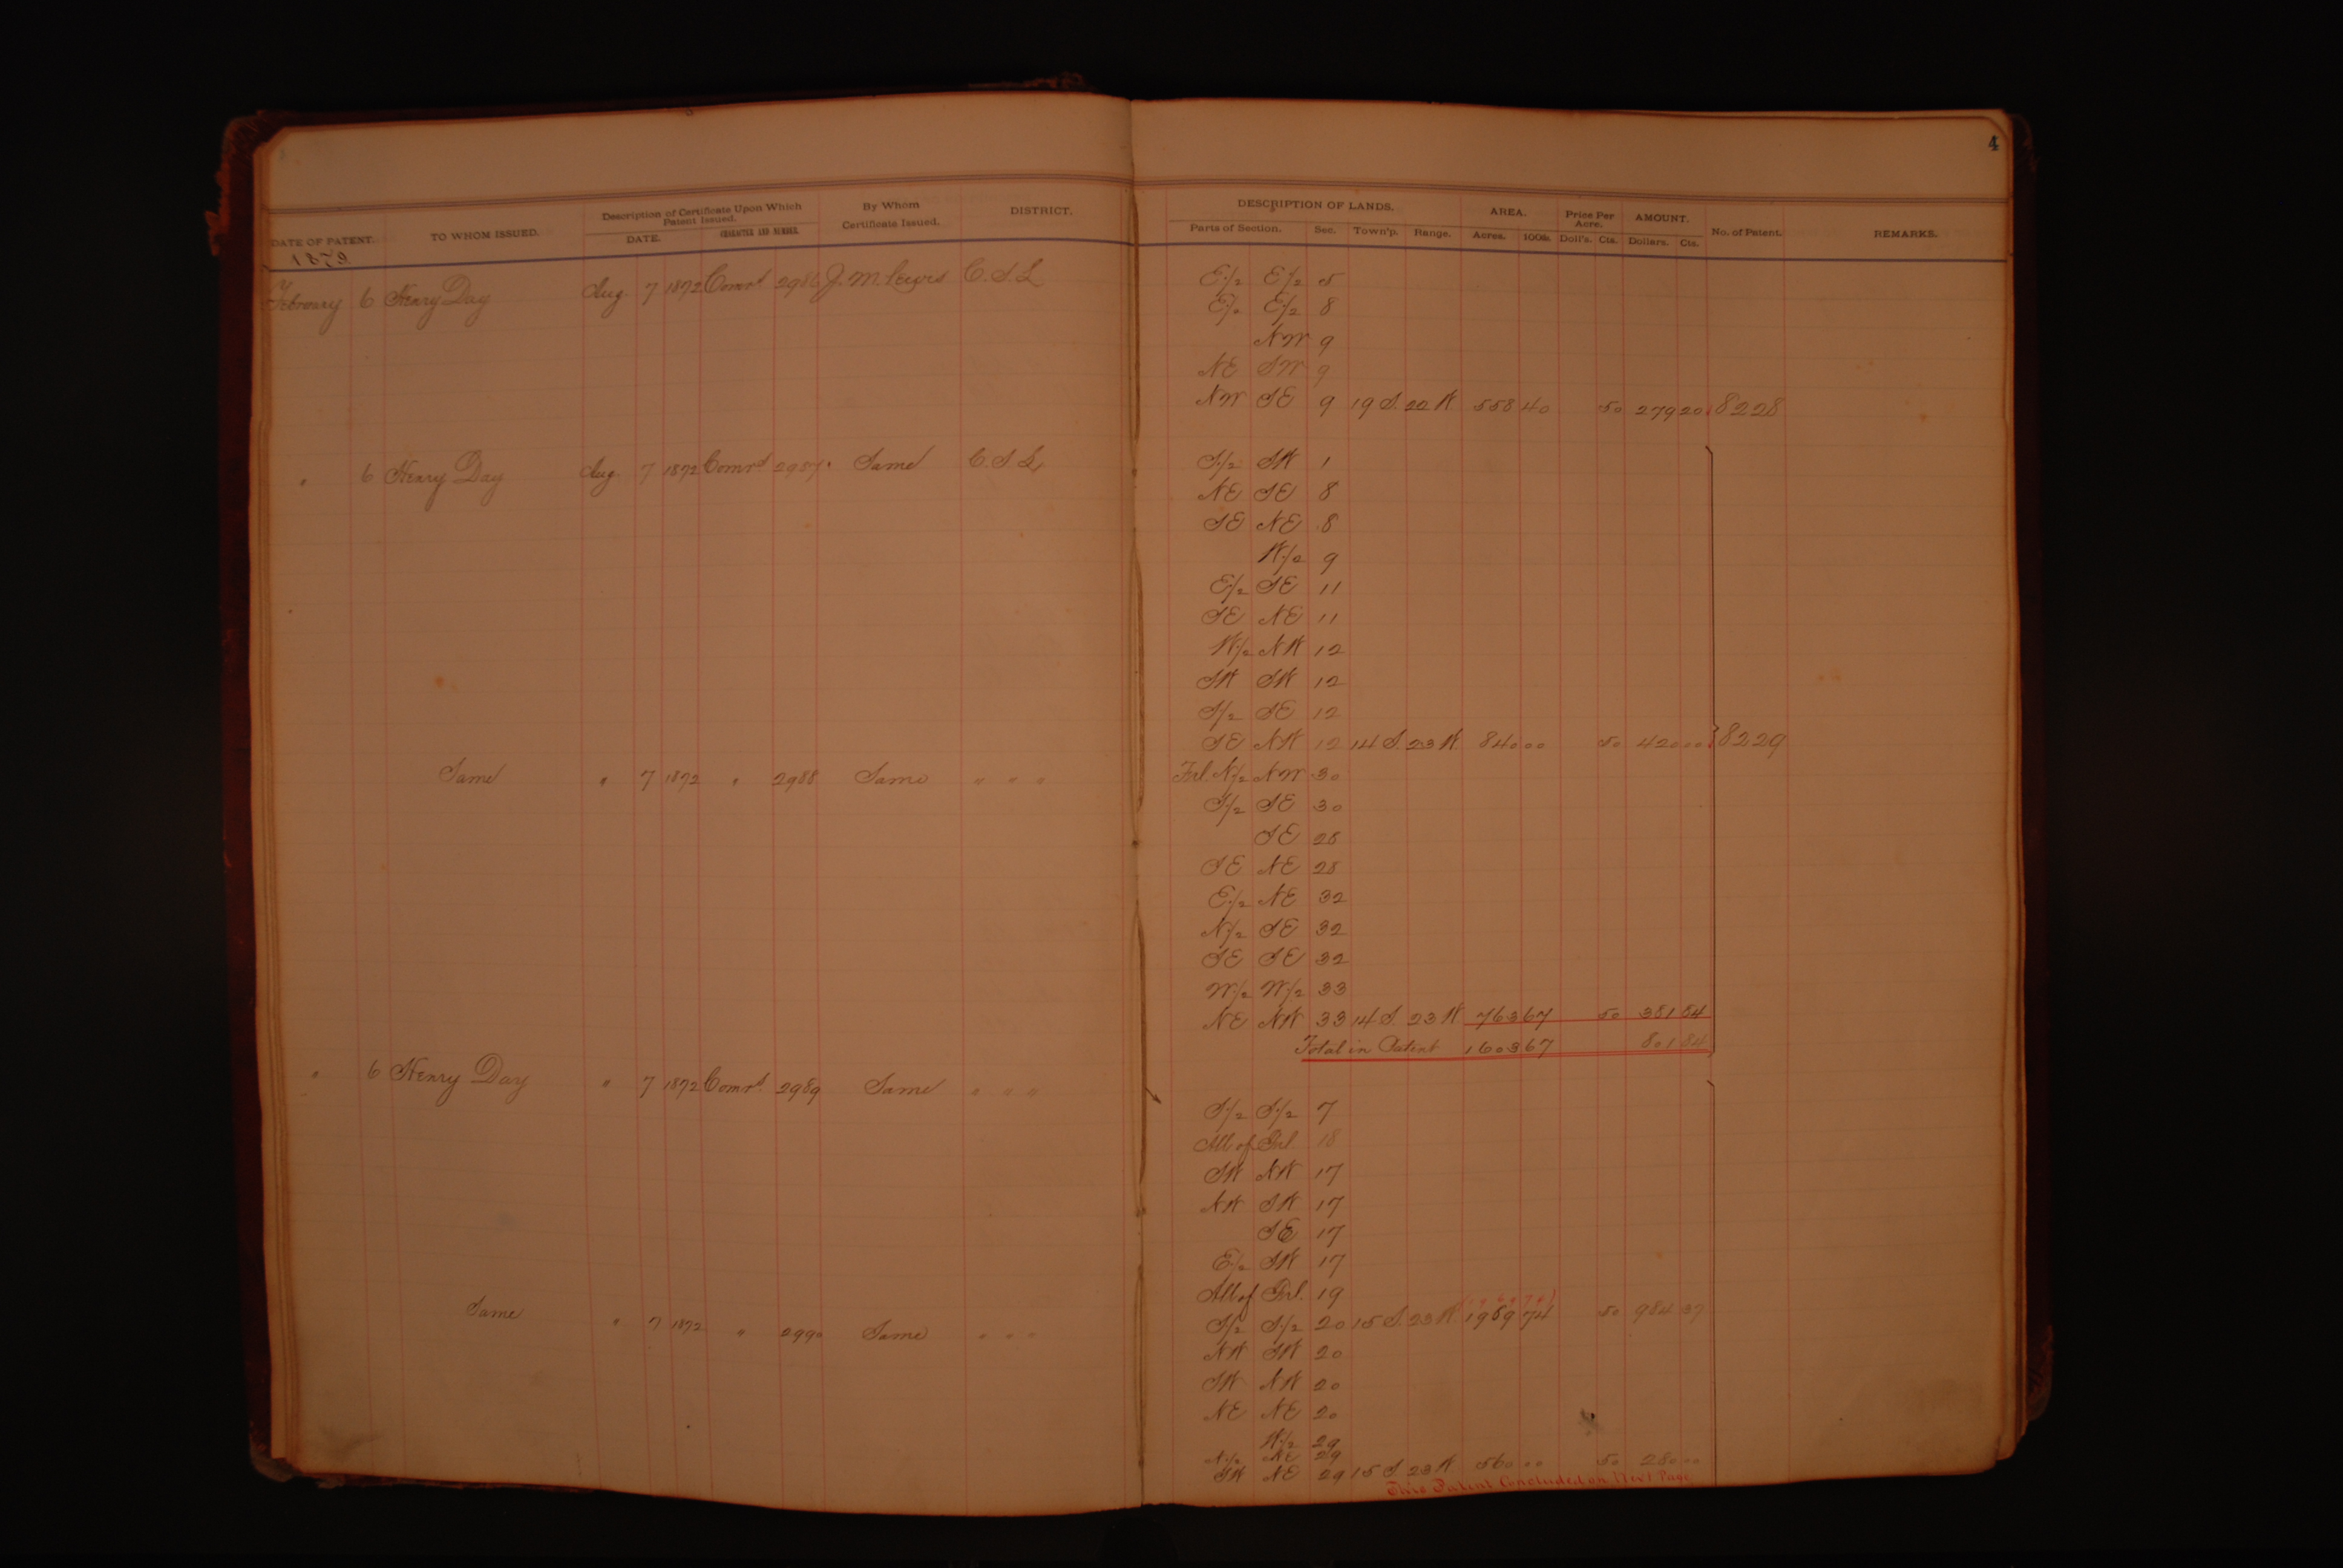 4
DATE OF PATENT. TO WHOM ISSUED. Description of Certificate Upon Which Patent Issued. DATE. CHARACTER AND NUMBER. By Whom Certificate Issued. DISTRICT. DESCRIPTION OF LANDS. Parts of Section. Sec. Town'p. Range. AREA. Acres. 100ds. Price Per Acre. Doll's. Cts. AMOUNT. Dollars. Cts. No. of Patent. REMARKS.
1879
February 6 Henry Day Aug. 7 1872 Comrs 2986 J. M. Lewis C. S. L E/2 E/2 5
E/2 E/2 8
NW 9
NE SW 9
NW SE 9 19 S. 22 W 558 40 50 279 20 8228
" 6 Henry Day Aug. 7 1872 Comrs 2987 Same C. S. L. S/2 SW 1
NE SE 8
SE NE 8
W/2 9
E/2 SE 11
SE NE 11
W/2 NW 12
SW SW 12
S/2 SE 12
SE NW 12 14 S. 23 W. 840 00 50 420 00 8229
Same " 7 1872 " 2988 Same " " " Frl. N/2 NW 30
S/2 SE 30
SE 28
SE NE 28
E/2 NE 32
N/2 SE 32
SE SE 32
W/2 W/2 33
NE NW 33 14 S. 23 W. 763 67 50 381 84
Total in Patent 1603 67 801 84
" 6 Henry Day " 7 1872 Comrs. 2989 Same " " " S/2 S/2 7
All of Frl. 18
SW NW 17
NW SW 17
SE 17
E/2 SW 17
All of Frl. 19
S/2 S/2 20 15 S. 23 W. 1969 74 50 984 37
Same " 7 1872 " 2990 Same " " " NW SW 20
SW NW 20
NE NE 20
W/2 29
N/2 NE 29
SW NE 29 15 S. 23 W 560 00 50 280 00
This Patent Concluded on Next Page